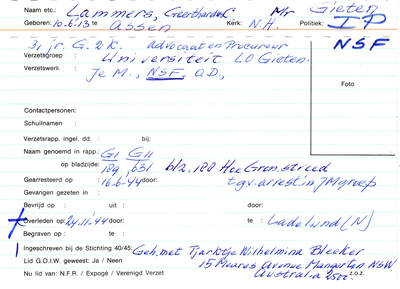 Naam etc.: Lammers, Geerthardus C. Mr Gieten
Geboren: 10-6-13 te Assen Kerk: N.H. Politiek: IP
31 jr. G. 2 K. advocaat en Procureur NSF
Verzetsgroep : Universiteit LO Gieten.
Verzetswerk : Je M., NSF, O.D.,
Foto
Contactpersonen:
Schuilnamen :
Verzetsrapp. ingel. dd. : bij:
Naam genoemd in rapp.: GI GII
op bladzijde: 189, 631 blz. 188 Hoe Gron. streed
Gearresteerd op : 16-6-44 door: t.g.v. arrest in JM groep
Gevangen gezeten in :
Bevrijd op : uit : door :
Overleden op : 24-11-'44 door: te : Ladelund (N)
Begraven op : te :
Ingeschreven bij de Stichting 40/45: Geh. met Tjarktje Wilhelmina Bleeker
Lid G.O.I.W. geweest: Ja / Neen 15 Meares Avenue Mangerton NSW
Nu lid van: N.F.R. / Expogé / Verenigd Verzet Australia 2500. z.o.z.